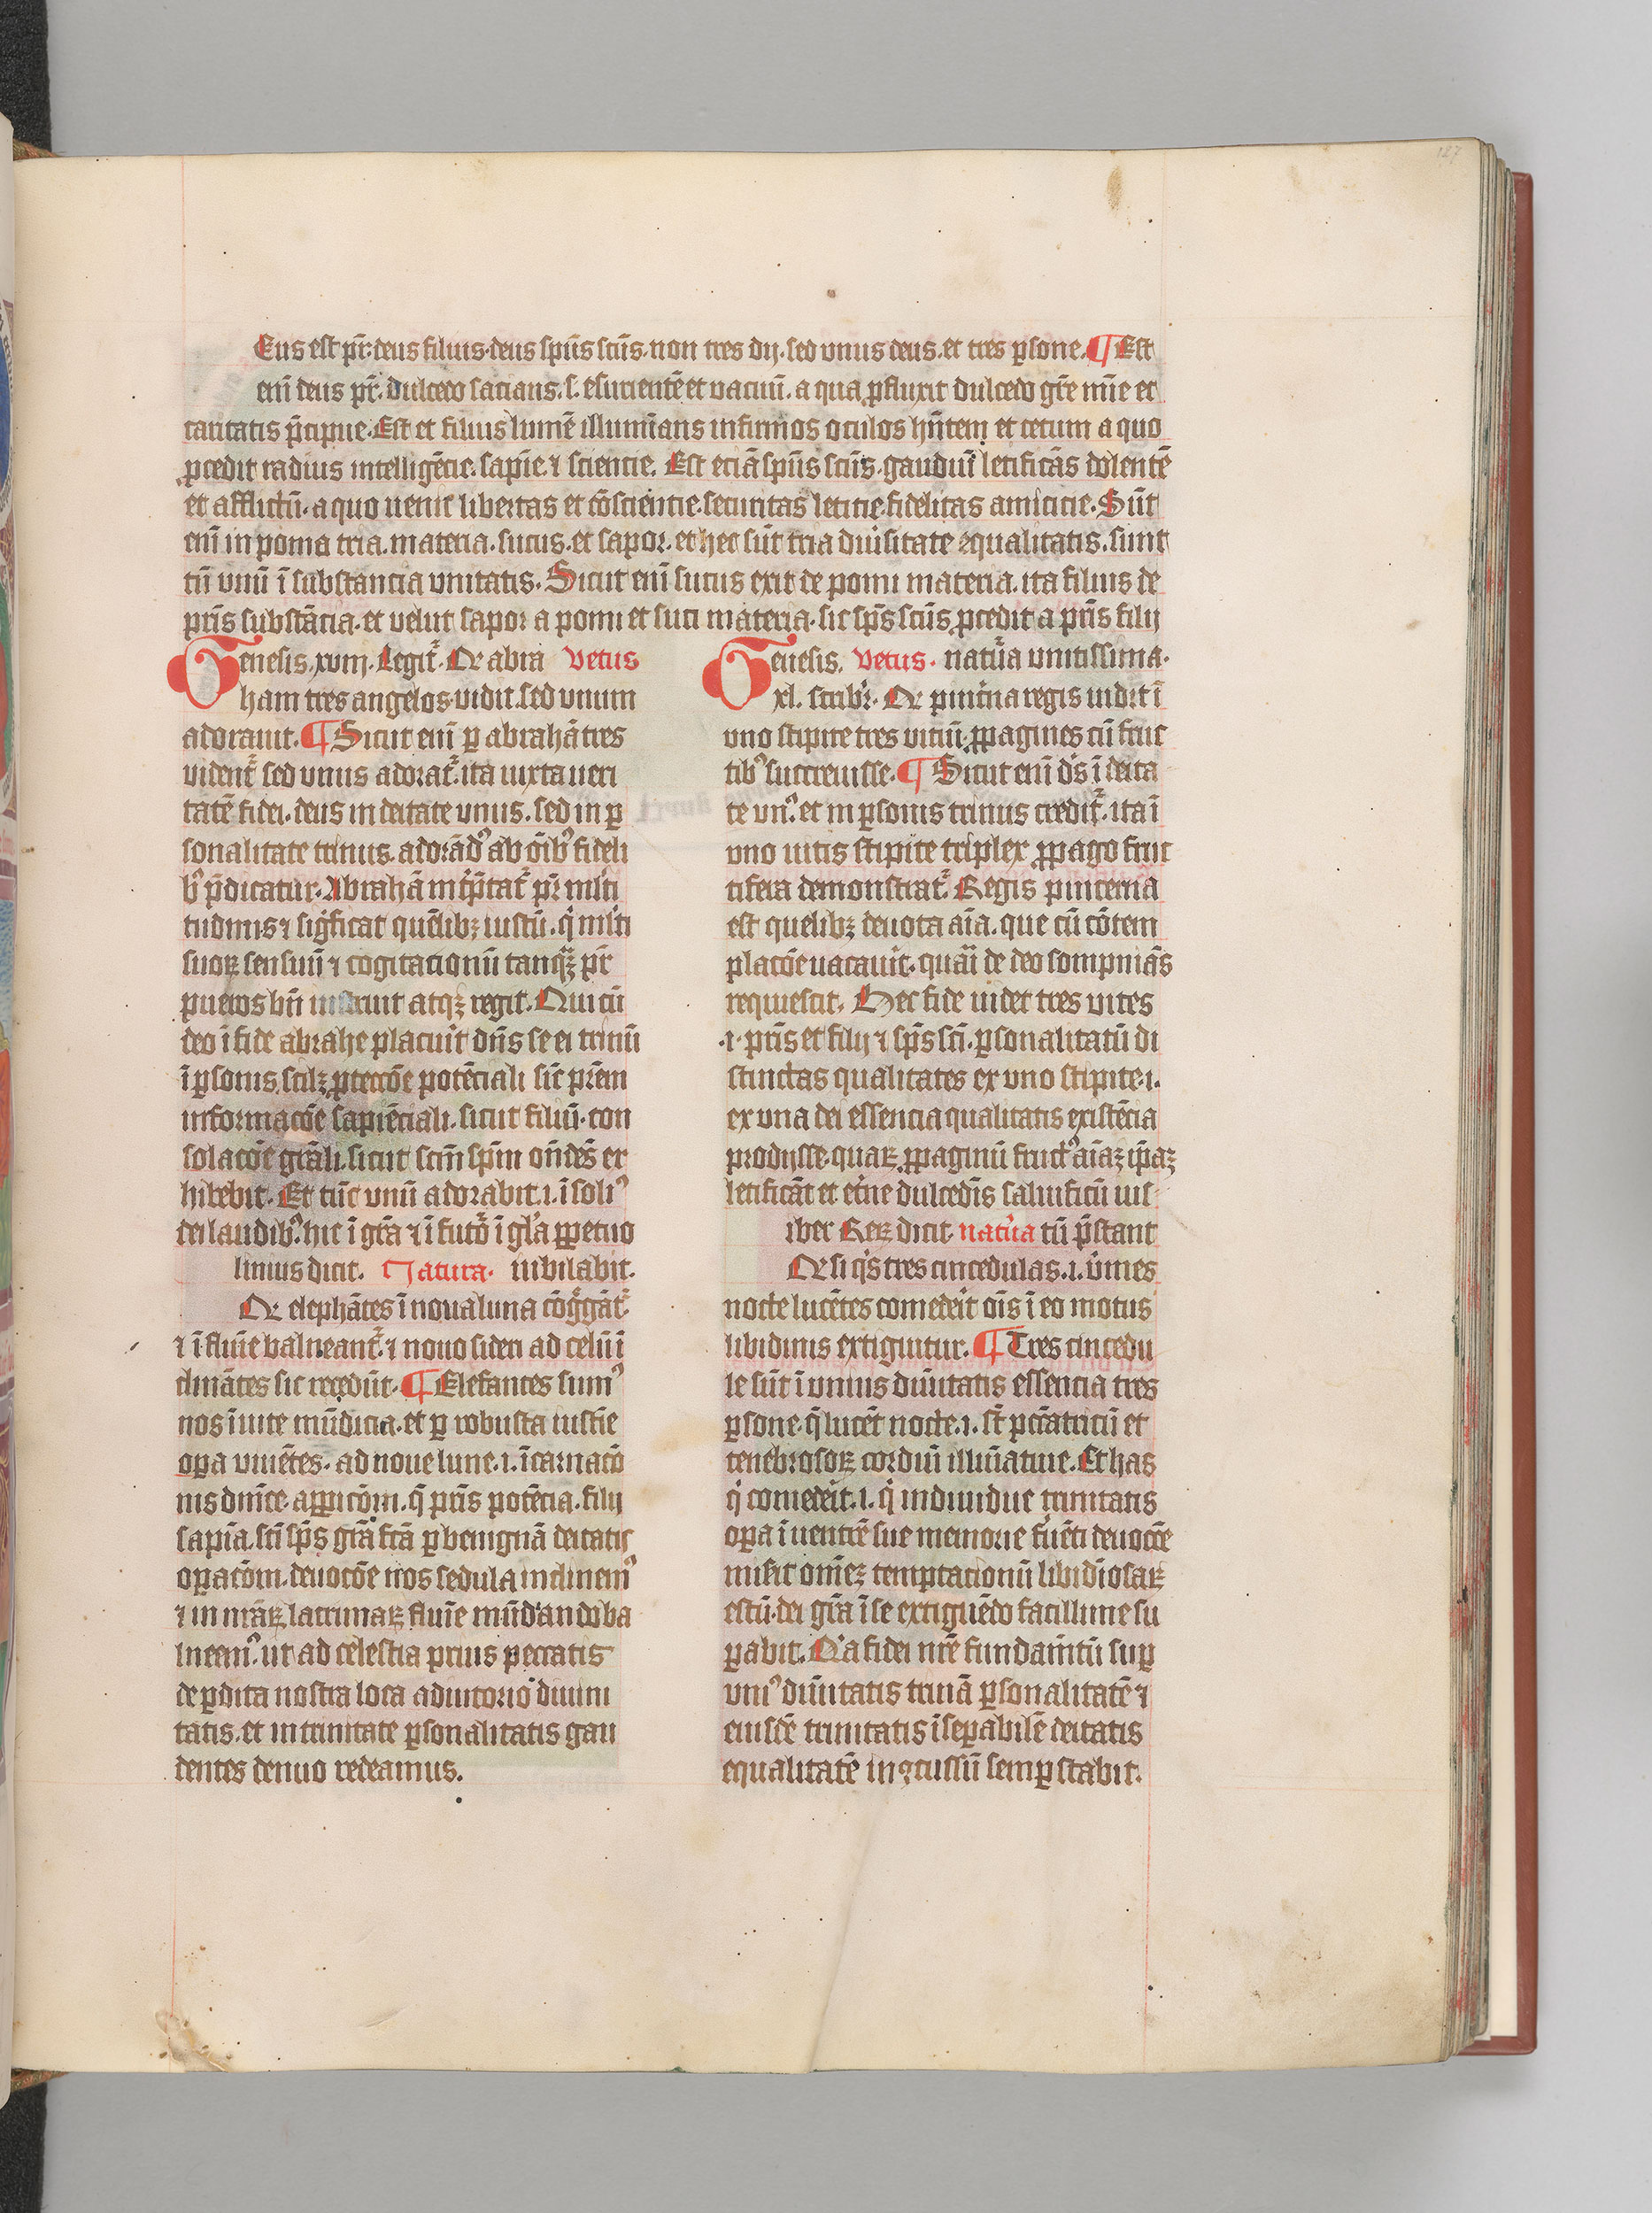 127
Eus est pr̄. deus filius. deus spūs scūs. non tres dij. sed vnus deus. et tres ꝑsone. ¶ Est
eni̅ deus pr̄. dulcedo sacians. s. esurientē et vacuū. a qua ꝓfluxit dulcedo gr̄e
caritatis p̄cipue. Est et filius lumē illumīans infirmos oculos hn̄tem et cecum a quo
ꝓcedit radius intelligēcie. sapīe. ⁊ sciencie. Est eciā spūs scūs. gaudiū letificās dolentē
et afflictū. a quo venit libertas et cōsciencie. securitas leticie. fidelitas amicicie. Sūt
eni̅ in poma tria. materia. sucus. et sapor. et hec sūt tria diūsitate equalitatis. sunt
tn̄ vnū ī substancia vnitatis. Sicut eni̅ sucus exit de pomi materia. ita filius de
pr̄is substācia. et velut sapor a pomi et suci materia. sic sp̄s scūs ꝓcedit a pr̄is filij
Genesis. xviij. Legit᷑. Qr abra Vetus
ham tres angelos vidit. sed vnum
adorauit. ¶ Sicut eni̅ ꝑ abrahā tres
vident᷑ sed vnus adorat᷑. ita iuxta ueri
tatē fidei. deus in deitate vnus. sed in ꝑ
sonalitate trinus. adorādꝰ ab oībꝰ fideli
bꝰ p̄dicatur. Abrahā int̄p̄tat᷑ pr̄ ml̄ti
tudinis ⁊ sigficat quēlibꝫ iustū. q̄ ml̄ti
suoꝝ sensuū ⁊ cogitacionū tanqꝫ pr̄
pueros bn̄ instruit atqꝫ regit. Qui cū
deo ī fide abrahe placuit dn̄s se ei trinū
ī ꝑsonis. scilꝫ ꝓteccōe potēciali sic̄ pr̄em
informacōe sapiēciali. sicut filiū. con
solacōe gr̄ali. sicut scm̄ spm̄ on̄dēs ex
hibebit. Et tūc vnū adorabit. i. ī soliꝰ
dei laudibꝰ. hic ī gr̄a ⁊ ī futō ī gl̄a ꝑpetuo
linius dicit. Natura. iubilabit.
Qr elephātes ī noualuna cōg̊gāt᷑
⁊ ī fluuīe balneant᷑. ⁊ nouo sideri ad celū ī
clināres sic recedūt. ¶ Elefantes sumꝰ
nos ī uite mūdicia. et ꝑ robusta iusticie
oꝑa viuētes. ad noue lune. i. īcarnacō
nis dn̄ice apꝑicōm. q̄ pr̄is potēcia. filij
sapīa. sci̅ sp̄s gr̄a fc̄ā ꝑ benignā deitatis
oꝑacōm. deuocōe nos sedula inclinemꝰ
⁊ in nr̄aꝝ lacrimaꝝ fluuīe mūdando ba
lneemꝰ. ut ad celestia prius peccatis
deꝑdita nostra loca adiutorio diuini
tatis. et in trinitate ꝑsonalitatis gau
dentes denuo redeamus.
Genesis. Vetus. natūa vnitissima.
xl. scribr̄. Qr pincīna regis uidit ī
vno stipite tres vitiū ꝓpagines cū fruc
tibꝰ succreuisse. ¶ Sicut eni̅ ds̄ ī deita
te vnꝰ. et in ꝑsonis trinus credit᷑. ita ī
vno uitis stipite triplex ꝓpago fruc
tifera demonstrat᷑. Regis pincerna
est quelibꝫ deuota aīa. que cū cōtem
placōe uacauit. quāi de deo sompniās
requiescit. Hec fide uidet tres uites
.i. pr̄is et filij ⁊ sp̄s sci̅. ꝑsonalitatū di
stinctas qualitates ex vno stipite. i.
ex vna dei essencia qualitatis existēcia
prodijsse. quaꝝ ꝓpaginū fructꝰ aīaꝫ ip̄aꝫ
letificāt et etne dulcedis saluificū uis
iber Reꝝ dicit. natūa tū p̄stant
Qr si qs̄ tres cincedulas. i. v̄mes
nocte lucētes comedeīt oīs ī eo motus
libidinis extiguitur. ¶ Tres cincedu
le sūt ī vnius diūitatis essencia tres
ꝑsone. q̄ lucēt nocte. i. st̄ pctātricū et
tenebrosoꝝ cordiū illuīatiue. Et has
q̄ comedeīt. i. q̄ indiuidue trinitatis
oꝑa ī uentrē sue memorie fūēti deuocōe
misit om̄eꝫ temptacionū libidīosaꝝ
estū. dei gr̄a ī se extiguēdo facillime su
ꝑabit. Qa fidei nr̄e fundam̄tū suꝑ
vniꝰ diūitatis trinā ꝑsonalitatē ⁊
eiusdē trinitatis īseꝑabilē deitatis
equalitatē inꝯcussū semꝑ stabit.